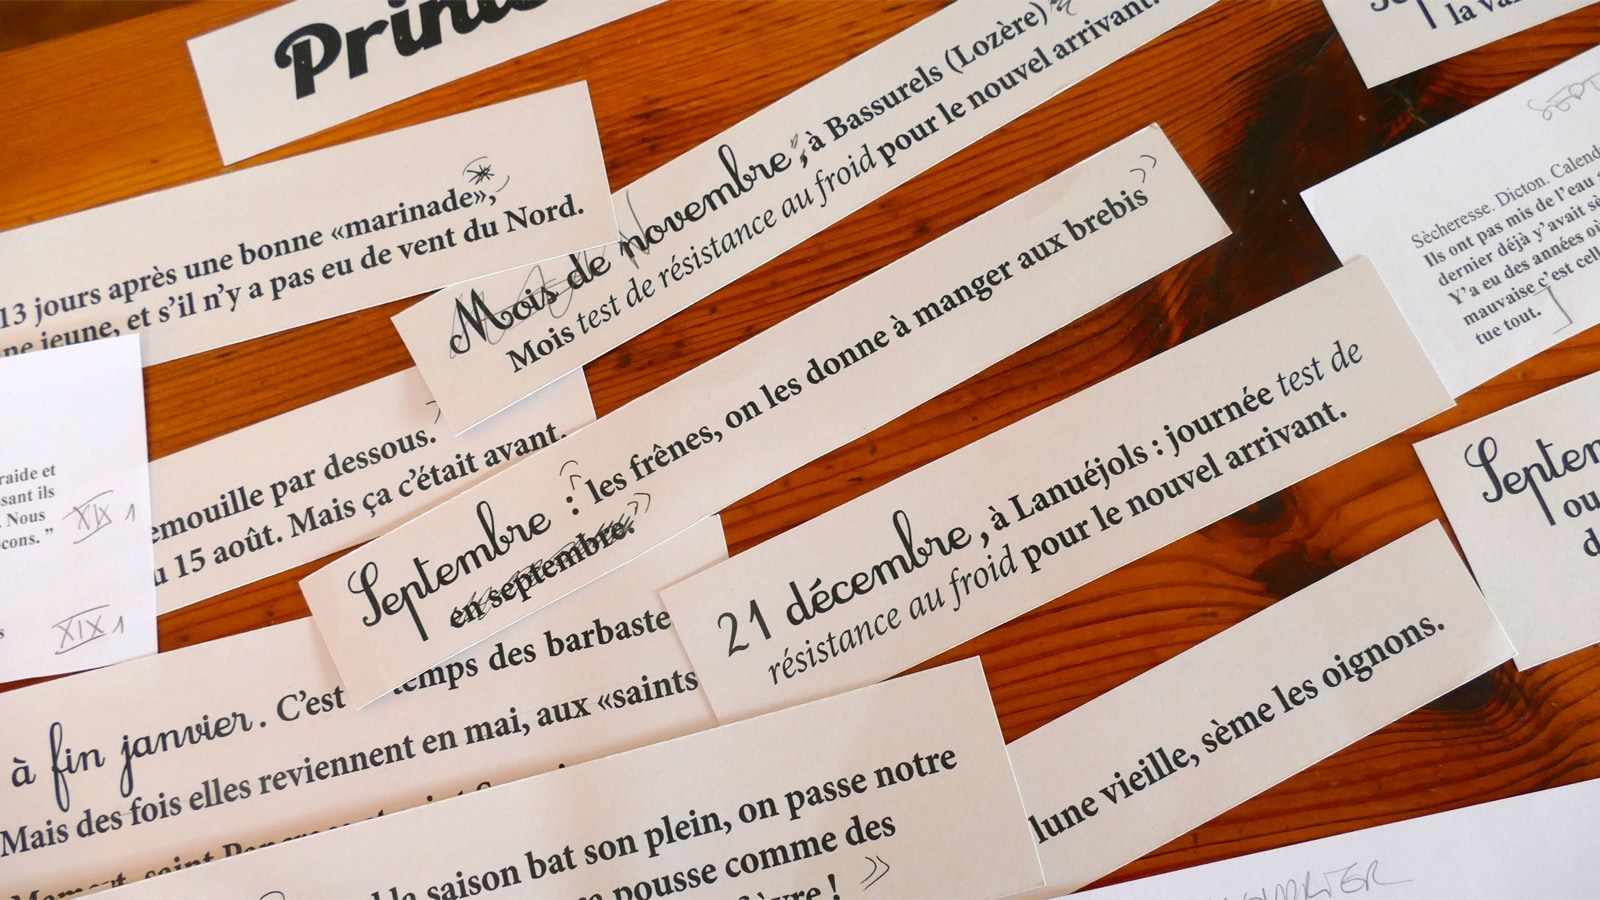 13 jours après une bonne «marinade»,*
ne jeune, et s'il n'y a pas eu de vent du Nord.
Mois de novembre, à Bassurels (Lozère)
Mois test de résistance au froid pour le nouvel arrivant.
la
Sècheresse. Dicton.
Ils ont pas mis de l'eau
dernier déjà y'avait
Y'a eu des années
mauvaise c'est
tue tout. ]
raide et
ils
Nous
XIX 1
XIX 1
par dessous.
15 août. Mais ça c'était avant.
Septembre : les frênes, on les donne à manger aux brebis »
en septembre. »
21 décembre, à Lanuéjols : journée test de
résistance au froid pour le nouvel arrivant.
ou
à fin janvier. C'est temps des barbaste
Mais des fois elles reviennent en mai, aux «saints
saint
la saison bat son plein, on passe notre
pousse comme des
! »
lune vieille, sème les oignons.